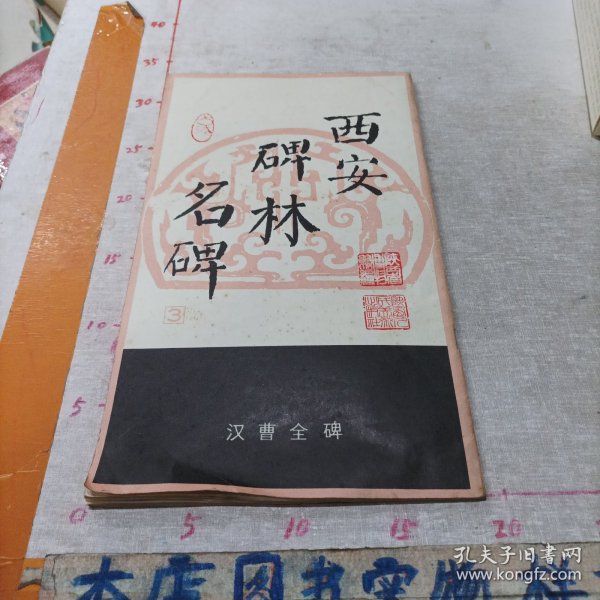 西安
碑林
名碑
3
汉曹全碑
40
35
30
25
20
15
10
5
0
5
10
15
20
本店图书实物
孔夫子旧书网
www.kongfz.com